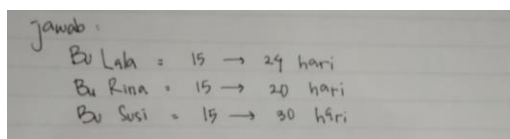 Jawab :
Bu Lala = 15 → 24 hari
Bu Rina = 15 → 20 hari
Bu Susi = 15 → 30 hari